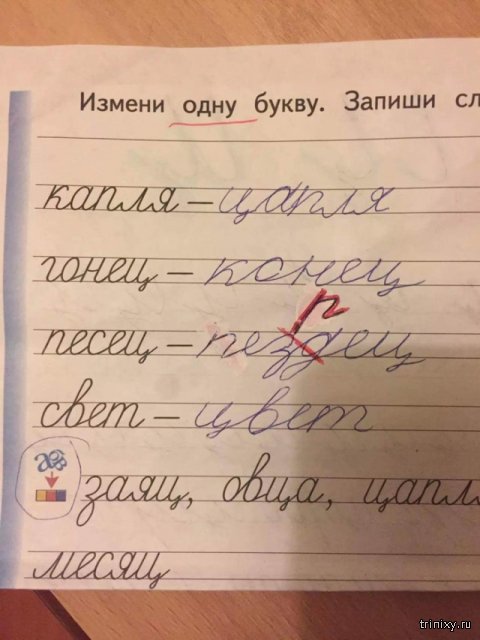 Измени одну букву. Запиши сл
капля – цапля
гонец – конец
р
песец – пездец
свет – цвет
заяц, овца, цапл
месяц
trinixy.ru